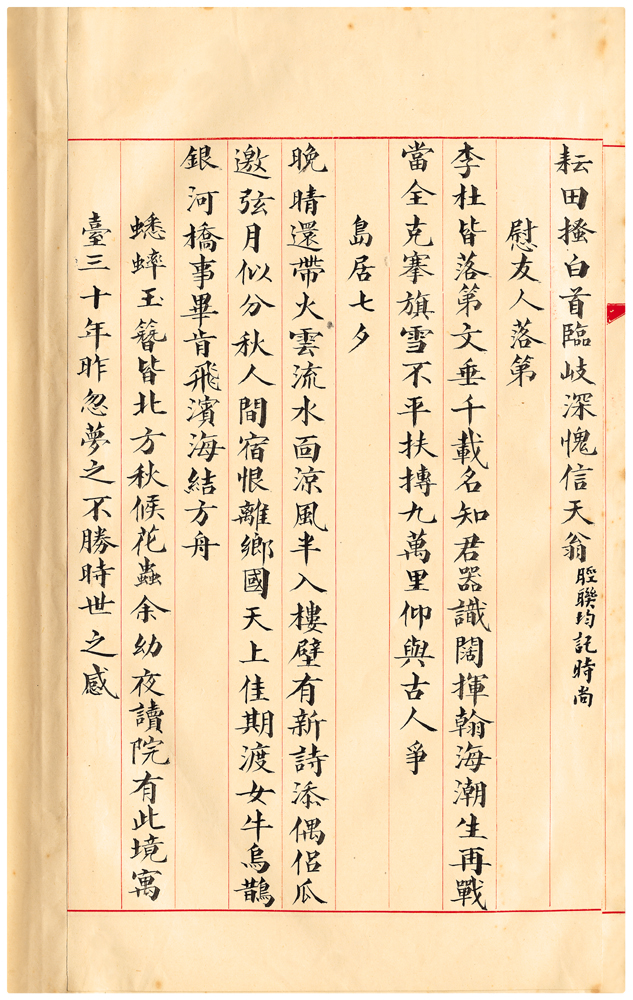 耘田搔白首臨岐深愧信天翁脛聯均記時尚
慰友人落第
李杜皆落第文垂千載名知君器識闊揮翰海潮生再戰
當全克搴旗雪不平扶摶九萬里仰與古人爭
島居七夕
晚晴還帶火雲流水面涼風半入樓壁有新詩添偶侶瓜
邀弦月似分秋人間宿恨離鄉國天上佳期渡女牛烏鵲
銀河橋事畢肯飛濱海結方舟
蟋蟀玉簪皆北方秋候花蟲余幼夜讀院有此境寓
臺三十年昨忽夢之不勝時世之感